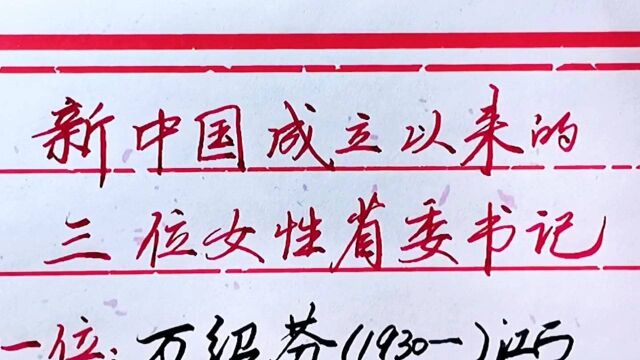 新中国成立以来的
三位女性省委书记
一位:万绍芬(1930一)江西